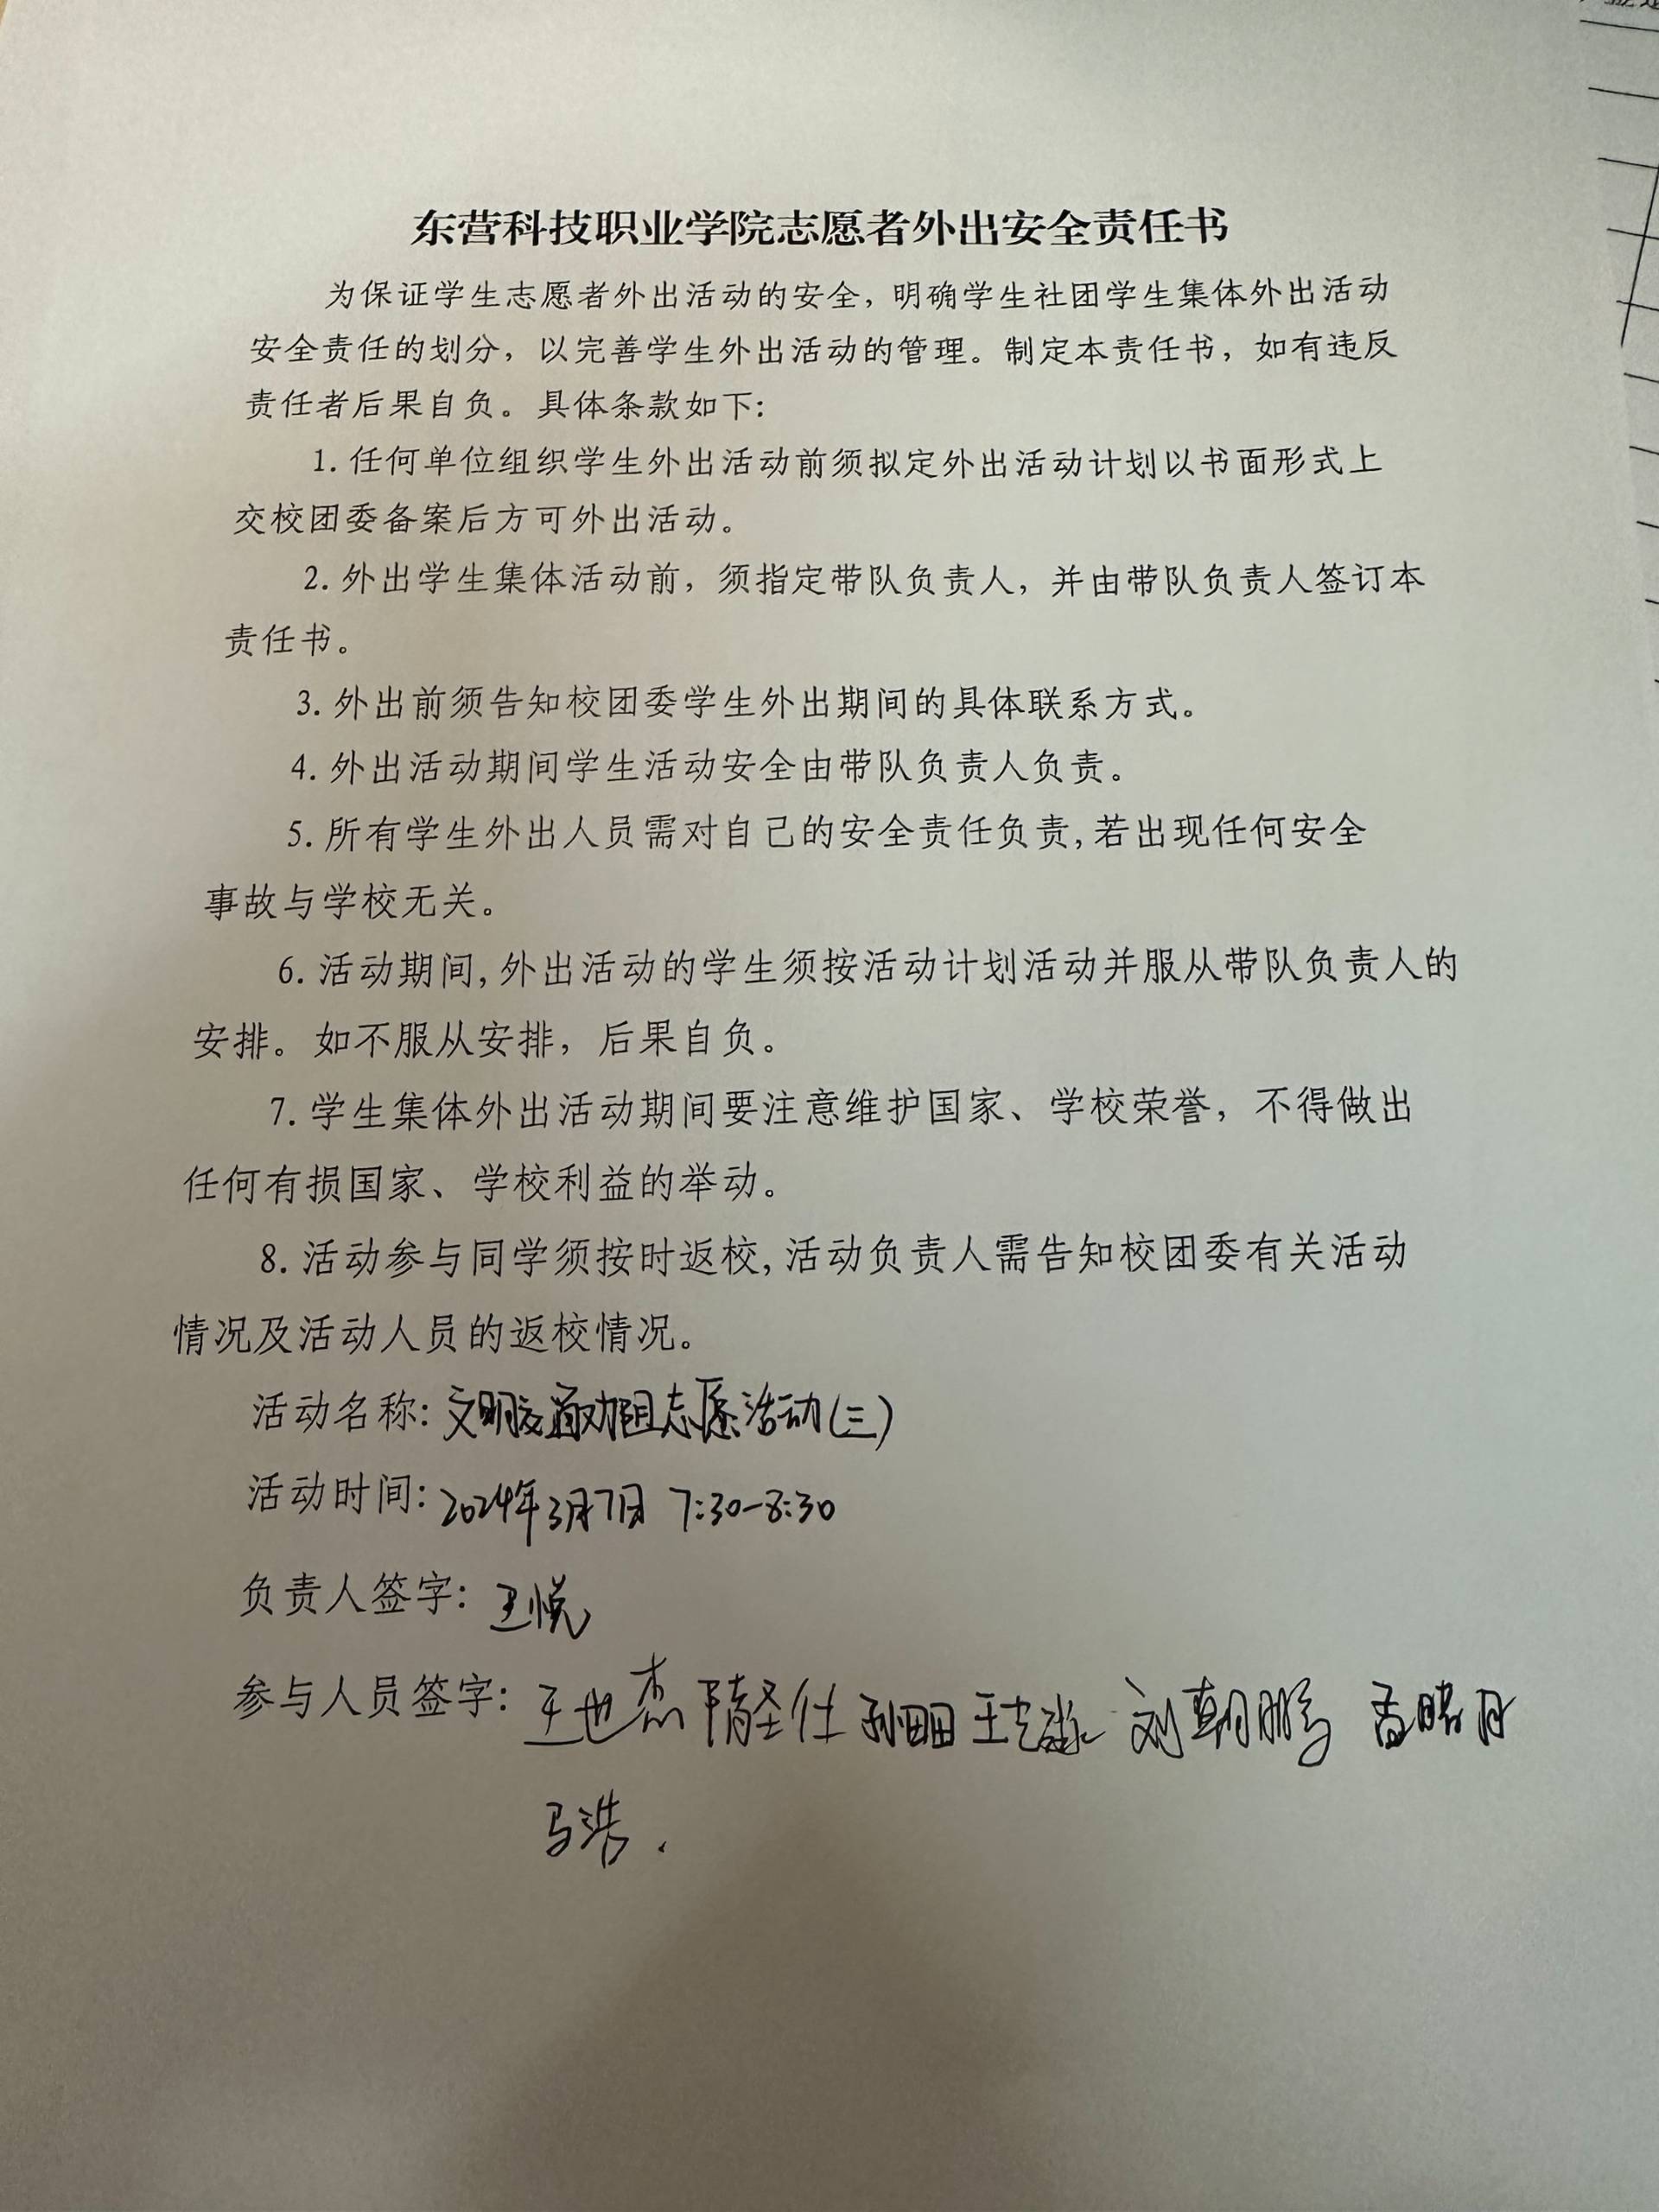 东营科技职业学院志愿者外出安全责任书
为保证学生志愿者外出活动的安全，明确学生社团学生集体外出活动
安全责任的划分，以完善学生外出活动的管理。制定本责任书，如有违反
责任者后果自负。具体条款如下：
1.任何单位组织学生外出活动前须拟定外出活动计划以书面形式上
交校团委备案后方可外出活动。
2.外出学生集体活动前，须指定带队负责人，并由带队负责人签订本
责任书。
3.外出前须告知校团委学生外出期间的具体联系方式。
4.外出活动期间学生活动安全由带队负责人负责。
5.所有学生外出人员需对自己的安全责任负责,若出现任何安全
事故与学校无关。
6.活动期间,外出活动的学生须按活动计划活动并服从带队负责人的
安排。如不服从安排，后果自负。
7.学生集体外出活动期间要注意维护国家、学校荣誉，不得做出
任何有损国家、学校利益的举动。
8.活动参与同学须按时返校,活动负责人需告知校团委有关活动
情况及活动人员的返校情况。
活动名称：文明交通劝阻志愿活动(三)
活动时间：2024年3月7日 7:30-8:30
负责人签字：王悦
参与人员签字：王也杰 隋圣仕 孙田田 刘朝鹏
马浩.